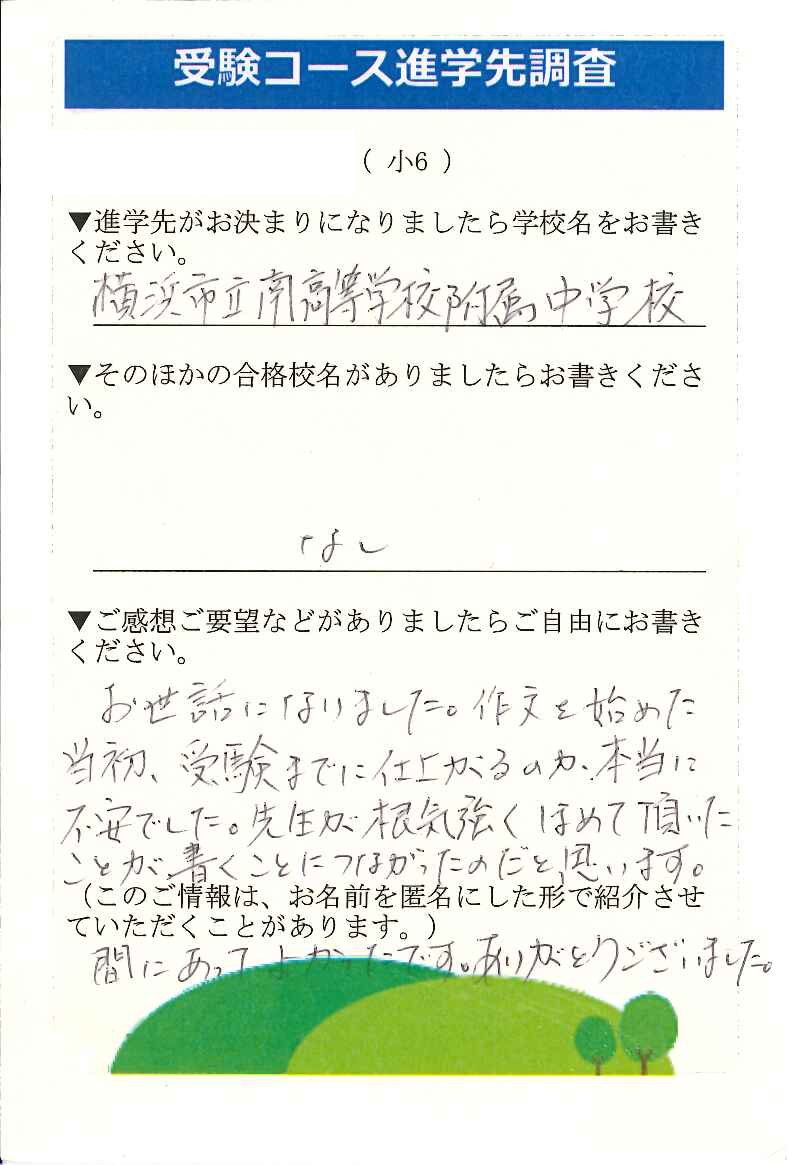 受験コース進学先調査
( 小6 )
▼進学先がお決まりになりましたら学校名をお書き
ください。
横浜市立南高等学校附属中学校
▼そのほかの合格校名がありましたらお書きくださ
い。
なし
▼ご感想ご要望などがありましたらご自由にお書き
ください。
お世話になりました。作文を始めた
当初、受験までに仕上がるのか、本当に
不安でした。先生が根気強くほめて頂いた
ことが書くことにつながったのだと思います。
（このご情報は、お名前を匿名にした形で紹介させ
ていただくことがあります。）
間にあってよかったです。ありがとうございました。